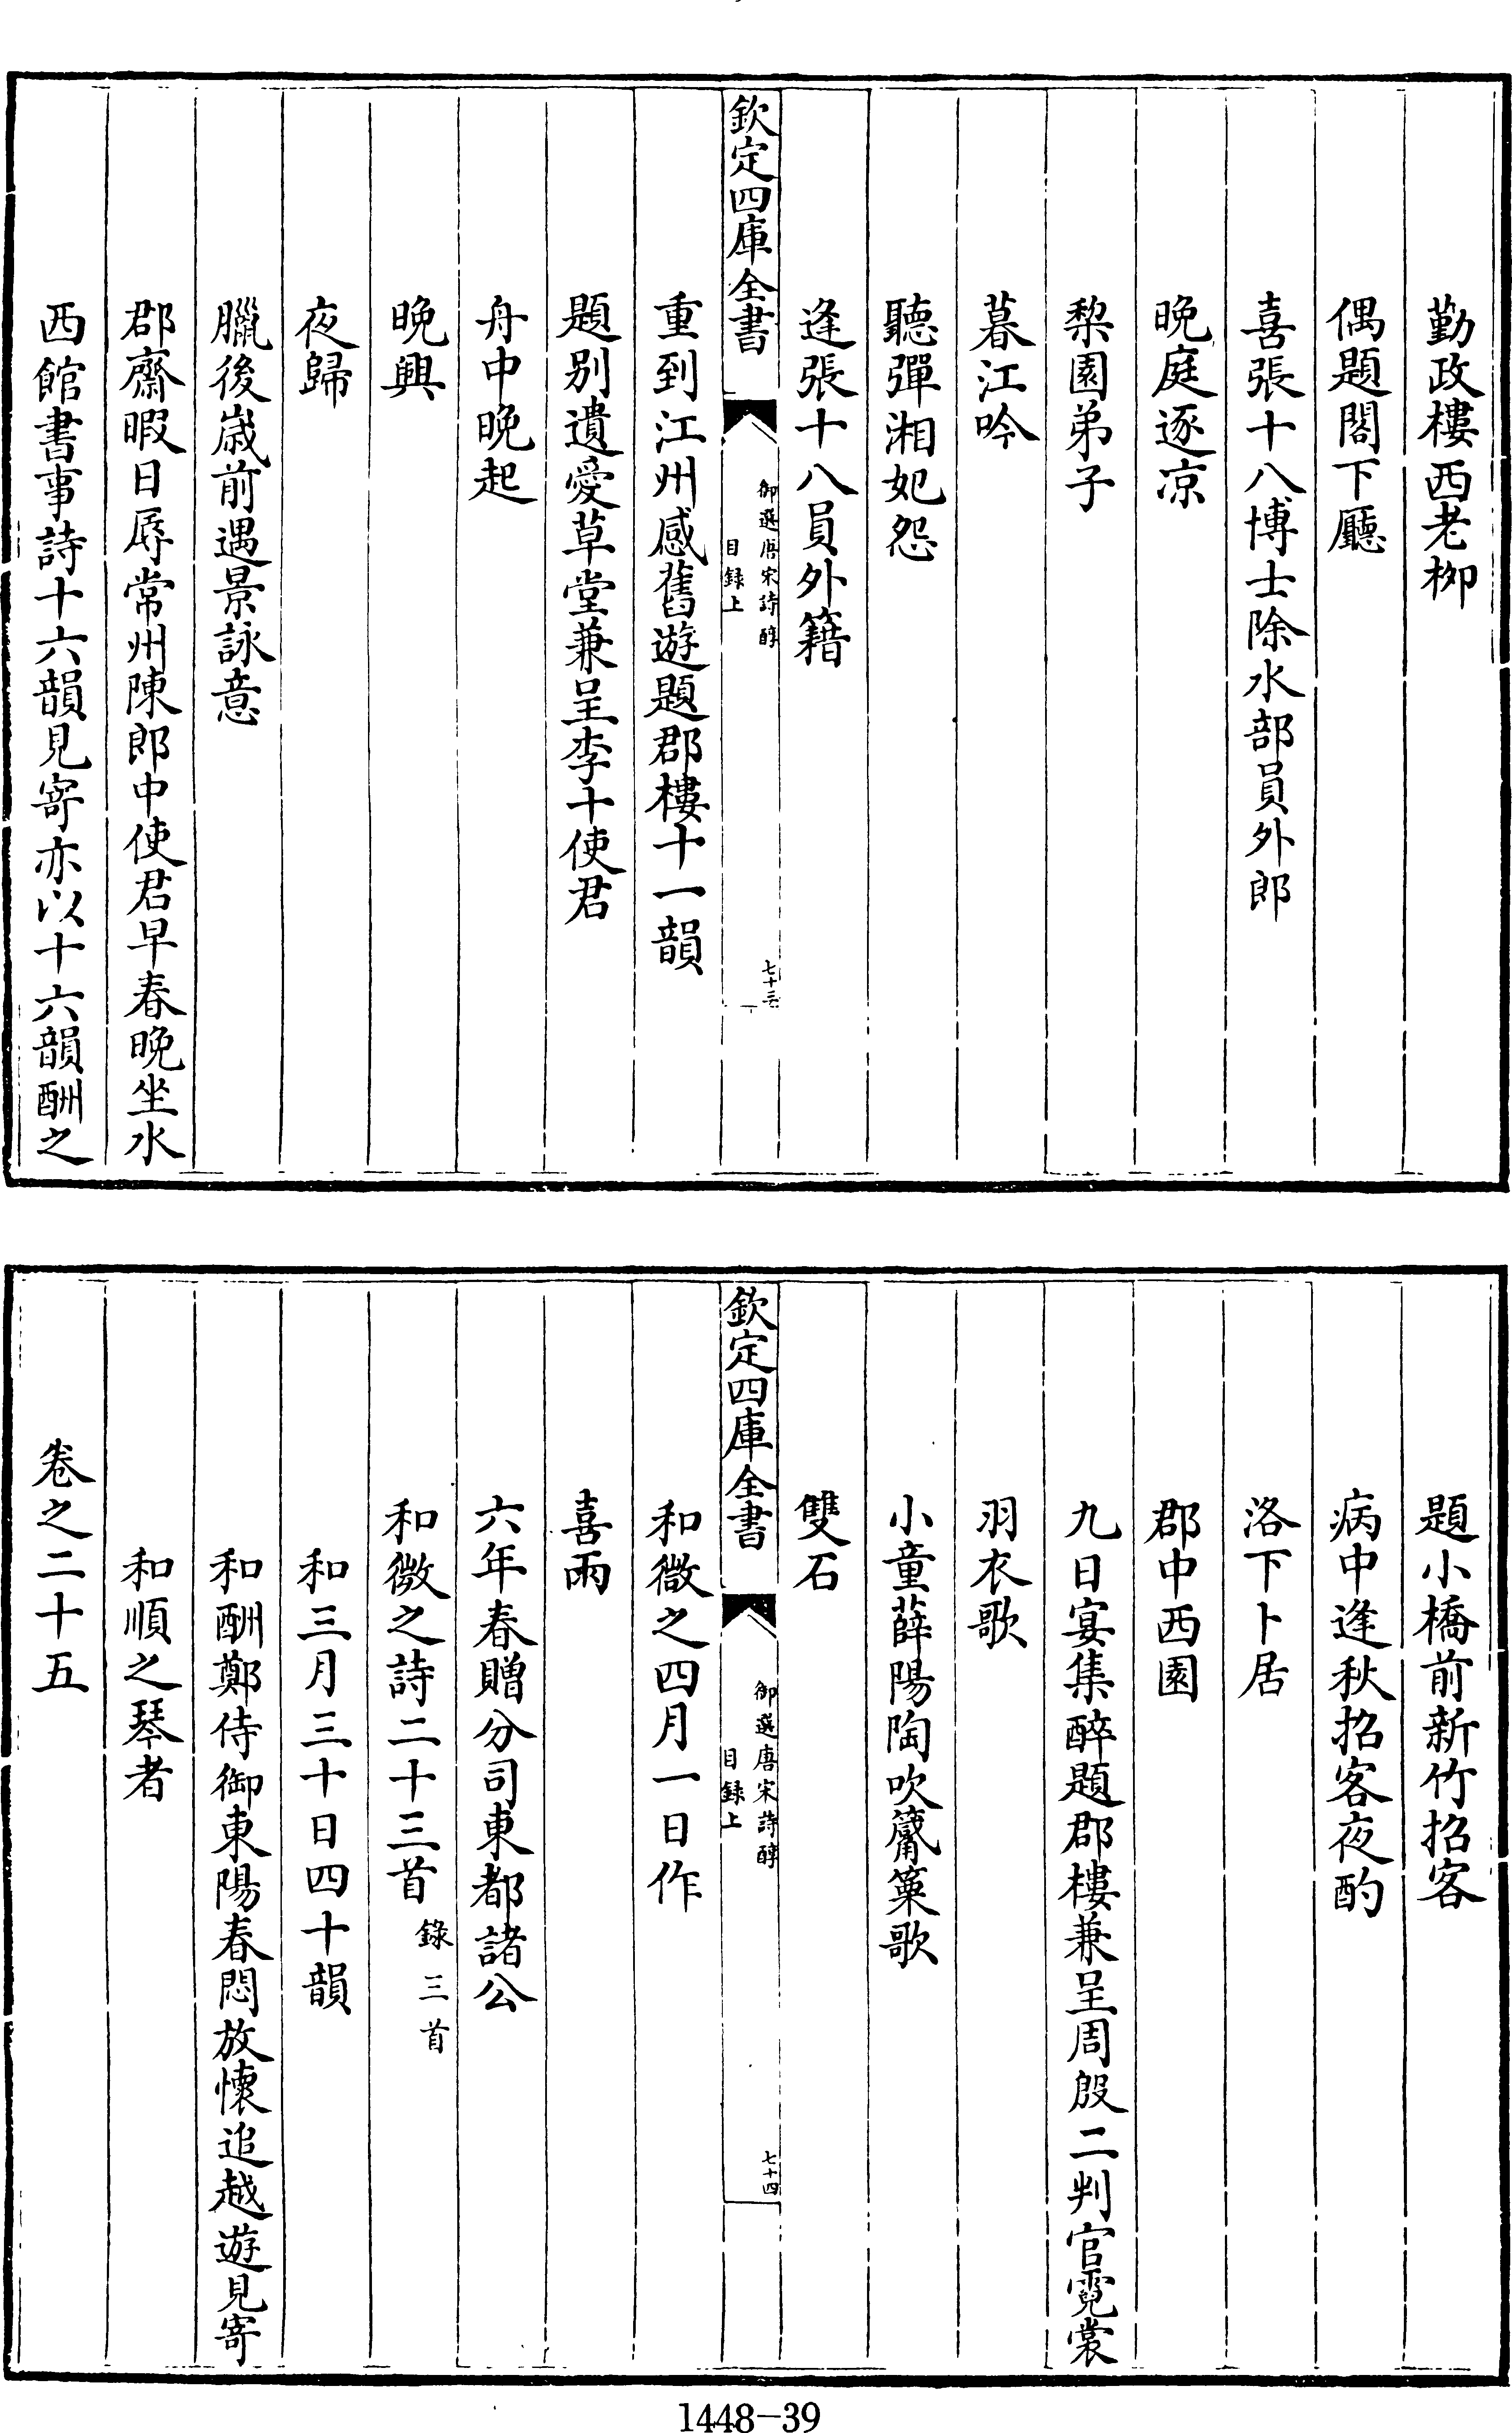 勤政樓西老柳
偶題閣下廳
喜張十八博士除水部員外郎
晚庭逐凉
梨園弟子
暮江吟
聽彈湘妃怨
逢張十八員外籍
欽定四庫全書
御選唐宋詩醇
目録上
七十三
重到江州感舊遊題郡樓十一韻
題别遺愛草堂兼呈李十使君
舟中晚起
晚興
夜歸
臘後歲前遇景詠意
郡齋暇日辱常州陳郎中使君早春晚坐水
西館書事詩十六韻見寄亦以十六韻酬之
題小橋前新竹招客
病中逢秋招客夜酌
洛下卜居
郡中西園
九日宴集醉題郡樓兼呈周殷二判官霓裳
羽衣歌
小童薛陽陶吹觱篥歌
雙石
欽定四庫全書
御選唐宋詩醇
目録上
七十四
和微之四月一日作
喜雨
六年春贈分司東都諸公
和微之詩二十三首 錄三首
和三月三十日四十韻
和酬鄭侍御東陽春悶放懷追越遊見寄
和順之琴者
卷之二十五
1448-39